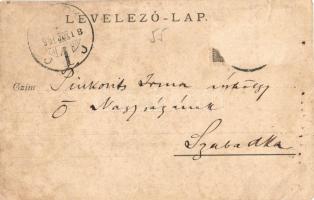 LEVELEZŐ-LAP.
55
Czim Pinkovits Irma úrhölgy
Ő Nagyságának
Szabadka